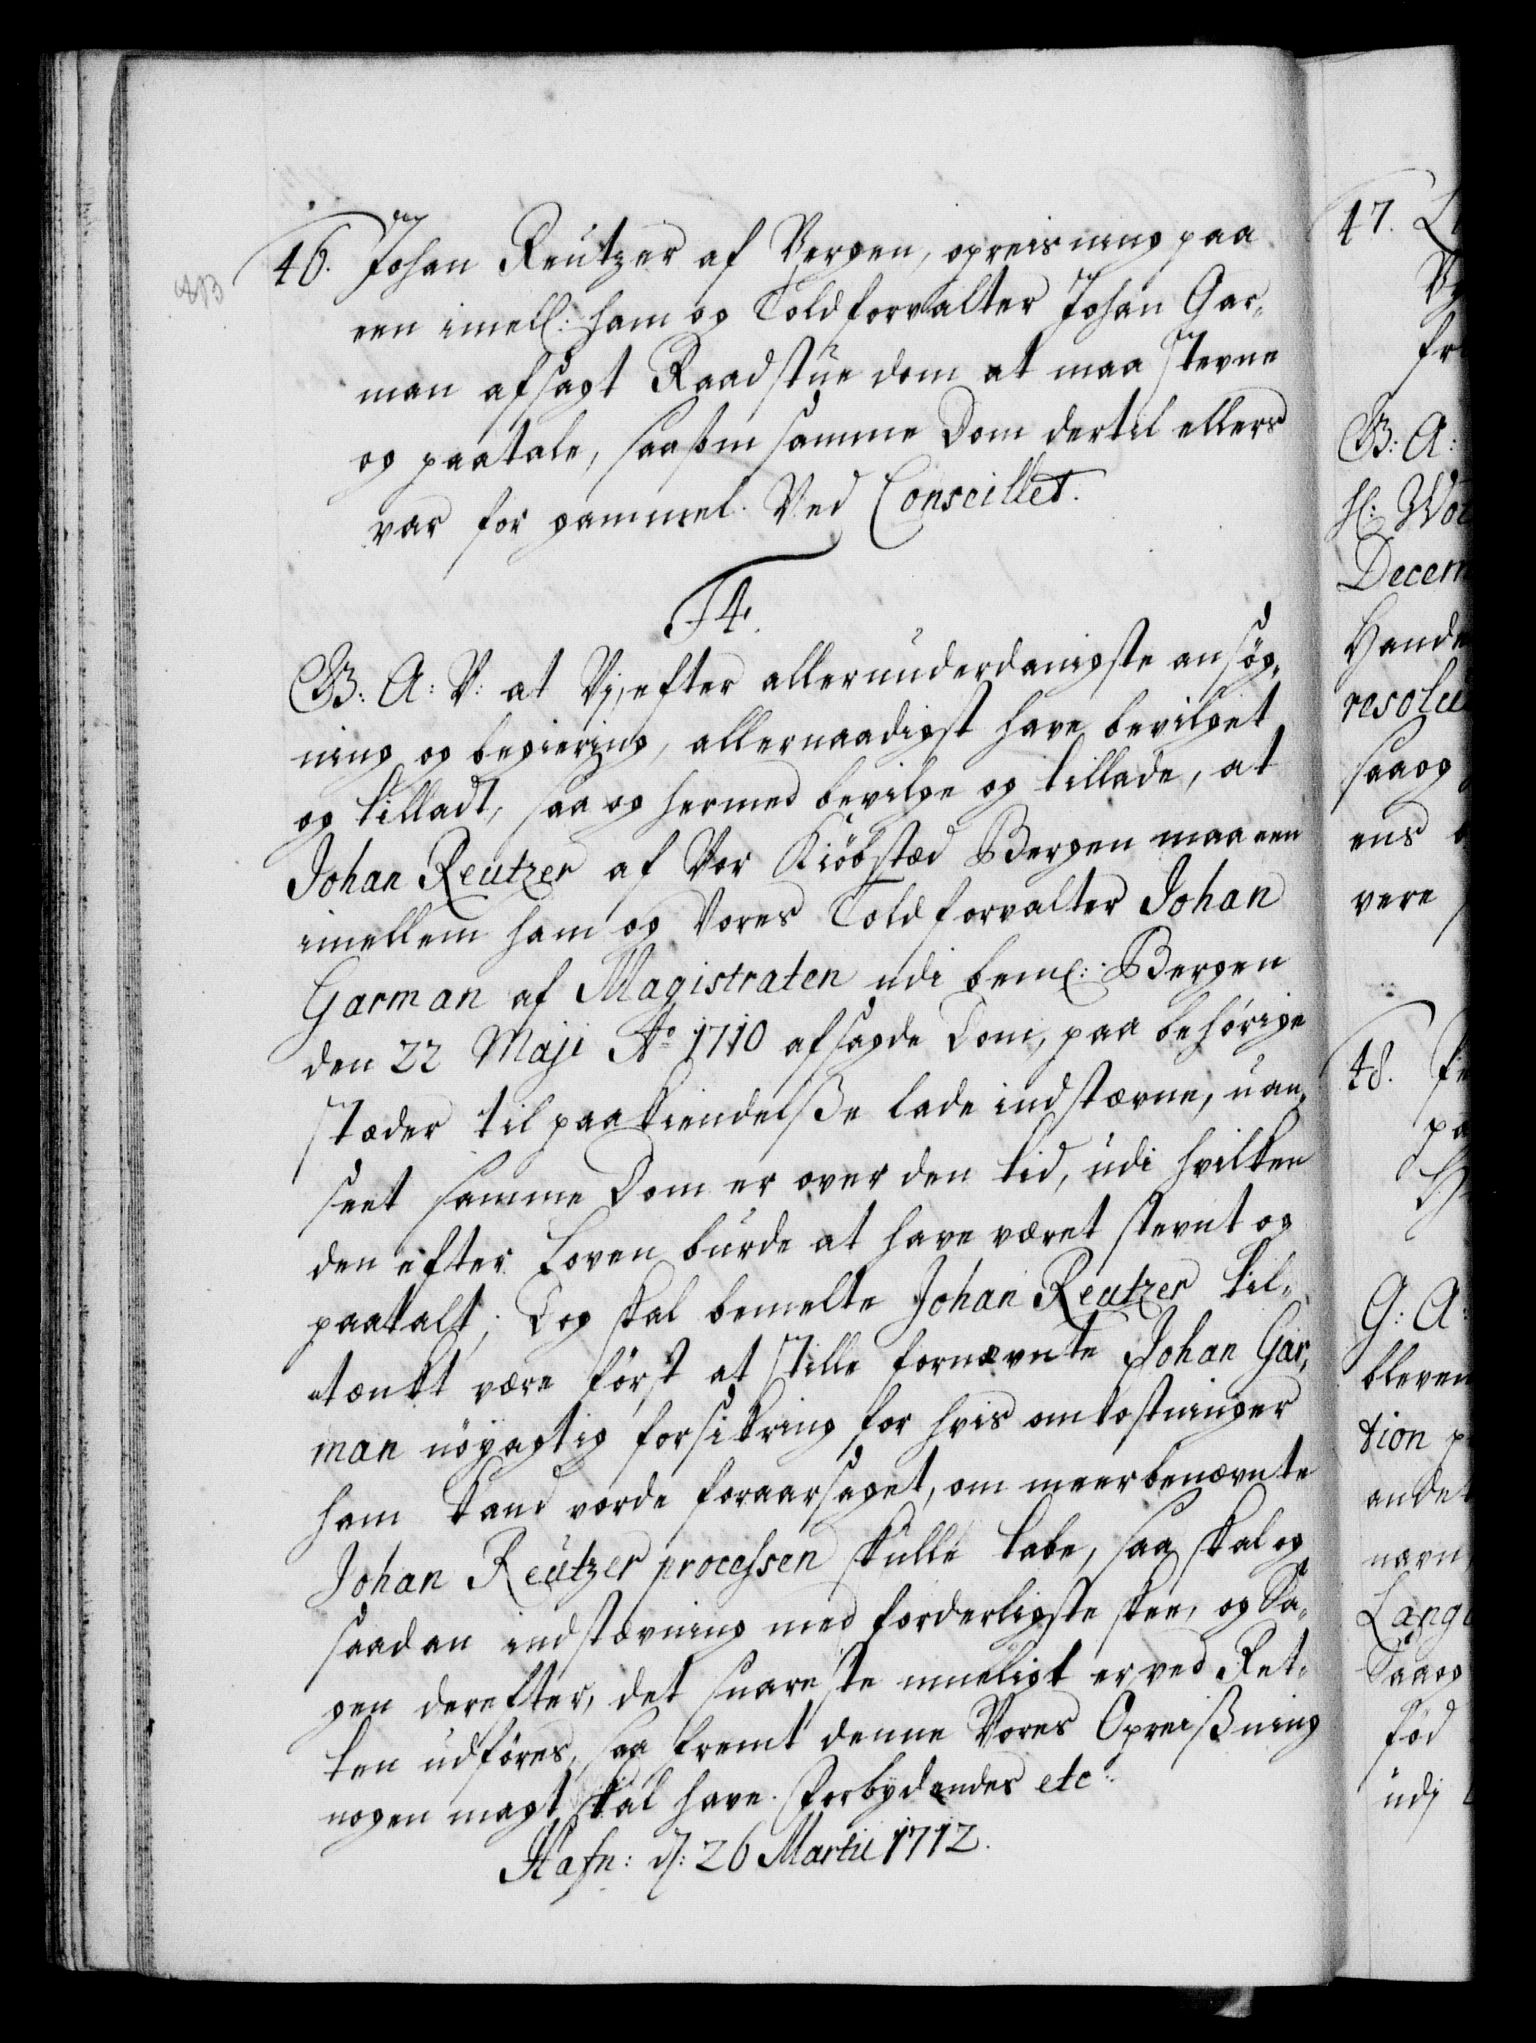 46. Johan Reutzer af Bergen, opreisning paa
een imell: ham og Toldforvalter Johan Gar-
man afsagt Raadstue dom at maa stevne
og paatale, saasom samme Dom dertil ellers
var for gammel. Ved Conseillet.
F4.
G: A: V: at Vi, efter allerunderdanigste ansøg-
ning og begiering, allernaadigst have bevilget
og tilladt, saa og hermed bevilge og tillade, at
Johan Reutzer af Vor Kiöbstæd Bergen maa een
imellem ham og Vores Toldforvalter Johan
Garman af Magistraten udi bem: Bergen
den 22 Maji Ao 1710 afsagde Dom, paa behörige
stæder til paakiendelße lade indstævne, uan-
seet samme Dom er over den tid, udi hvilken
den efter Loven burde at have været stevnt og
paatalt; Dog skal bemelte Johan Reutzer til-
tænkt være först at stille fornævnte Johan Gar-
man nöyagtig forsikring for hvis omkostninger
ham kand vorde foraarsaget, om meerbenævnte
Johan Reutzer processen skulle tabe, saa skal og
saadan indstævning med forderligste skee, og Sa-
gen derefter, det snareste mueligt er ved Ret-
ten udföres, saa fremt denne Vores Opreißning
nogen magt skal have. Forbydendes etc:
Hafn: d: 26 Martii 1712.
47.
G: A:
Decem
Hande
resolu
saa og
ens
vere
48.
G: A:
bleven
tion
andet
nævn
Lang
Saa og
föd
udj